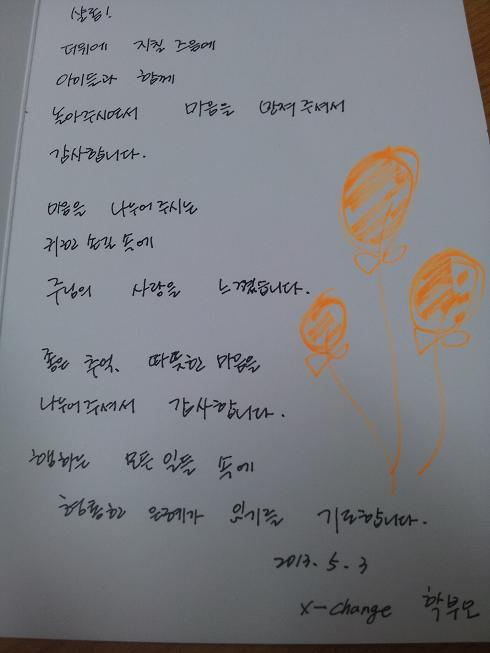 샬롬!
더위에 지칠 즈음에
아이들과 함께
놀아주시면서 마음을 만져주셔서
감사합니다.
마음을 나누어 주시는
귀한 손길 속에
주님의 사랑을 느꼈습니다.
좋은 추억, 따뜻한 마음을
나누어주셔서 감사합니다.
행하는 모든 일들 속에
형통한 은혜가 있기를 기도합니다.
2013. 5. 3
X-change 학부모